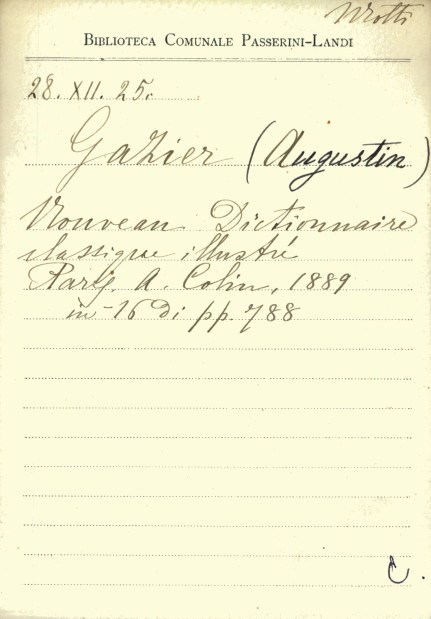 BIBLIOTECA COMUNALE PASSERINI-LANDI
28. XII. 25.
Gazier (Augustin)
Nouveau Dictionnaire
classique illustré
Parij. A. Colin, 1889
in-16 di pp. 788